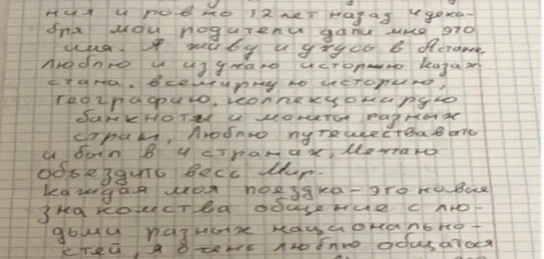 ния и ровно 12 лет назад 4 дека-
бря мои родители дали мне это
имя. Я живу и учусь в Астане,
люблю и изучаю историю Казах-
стана, всемирную историю,
географию, коллекционирую
банкноты и монеты разных
стран, Люблю путешествавать
и был в 4 странах, Мечтаю
объездить весь Мир.
Каждая моя поездка - это новые
знакомства общение с лю-
дьми разных национально-
стей, я очень люблю общаться